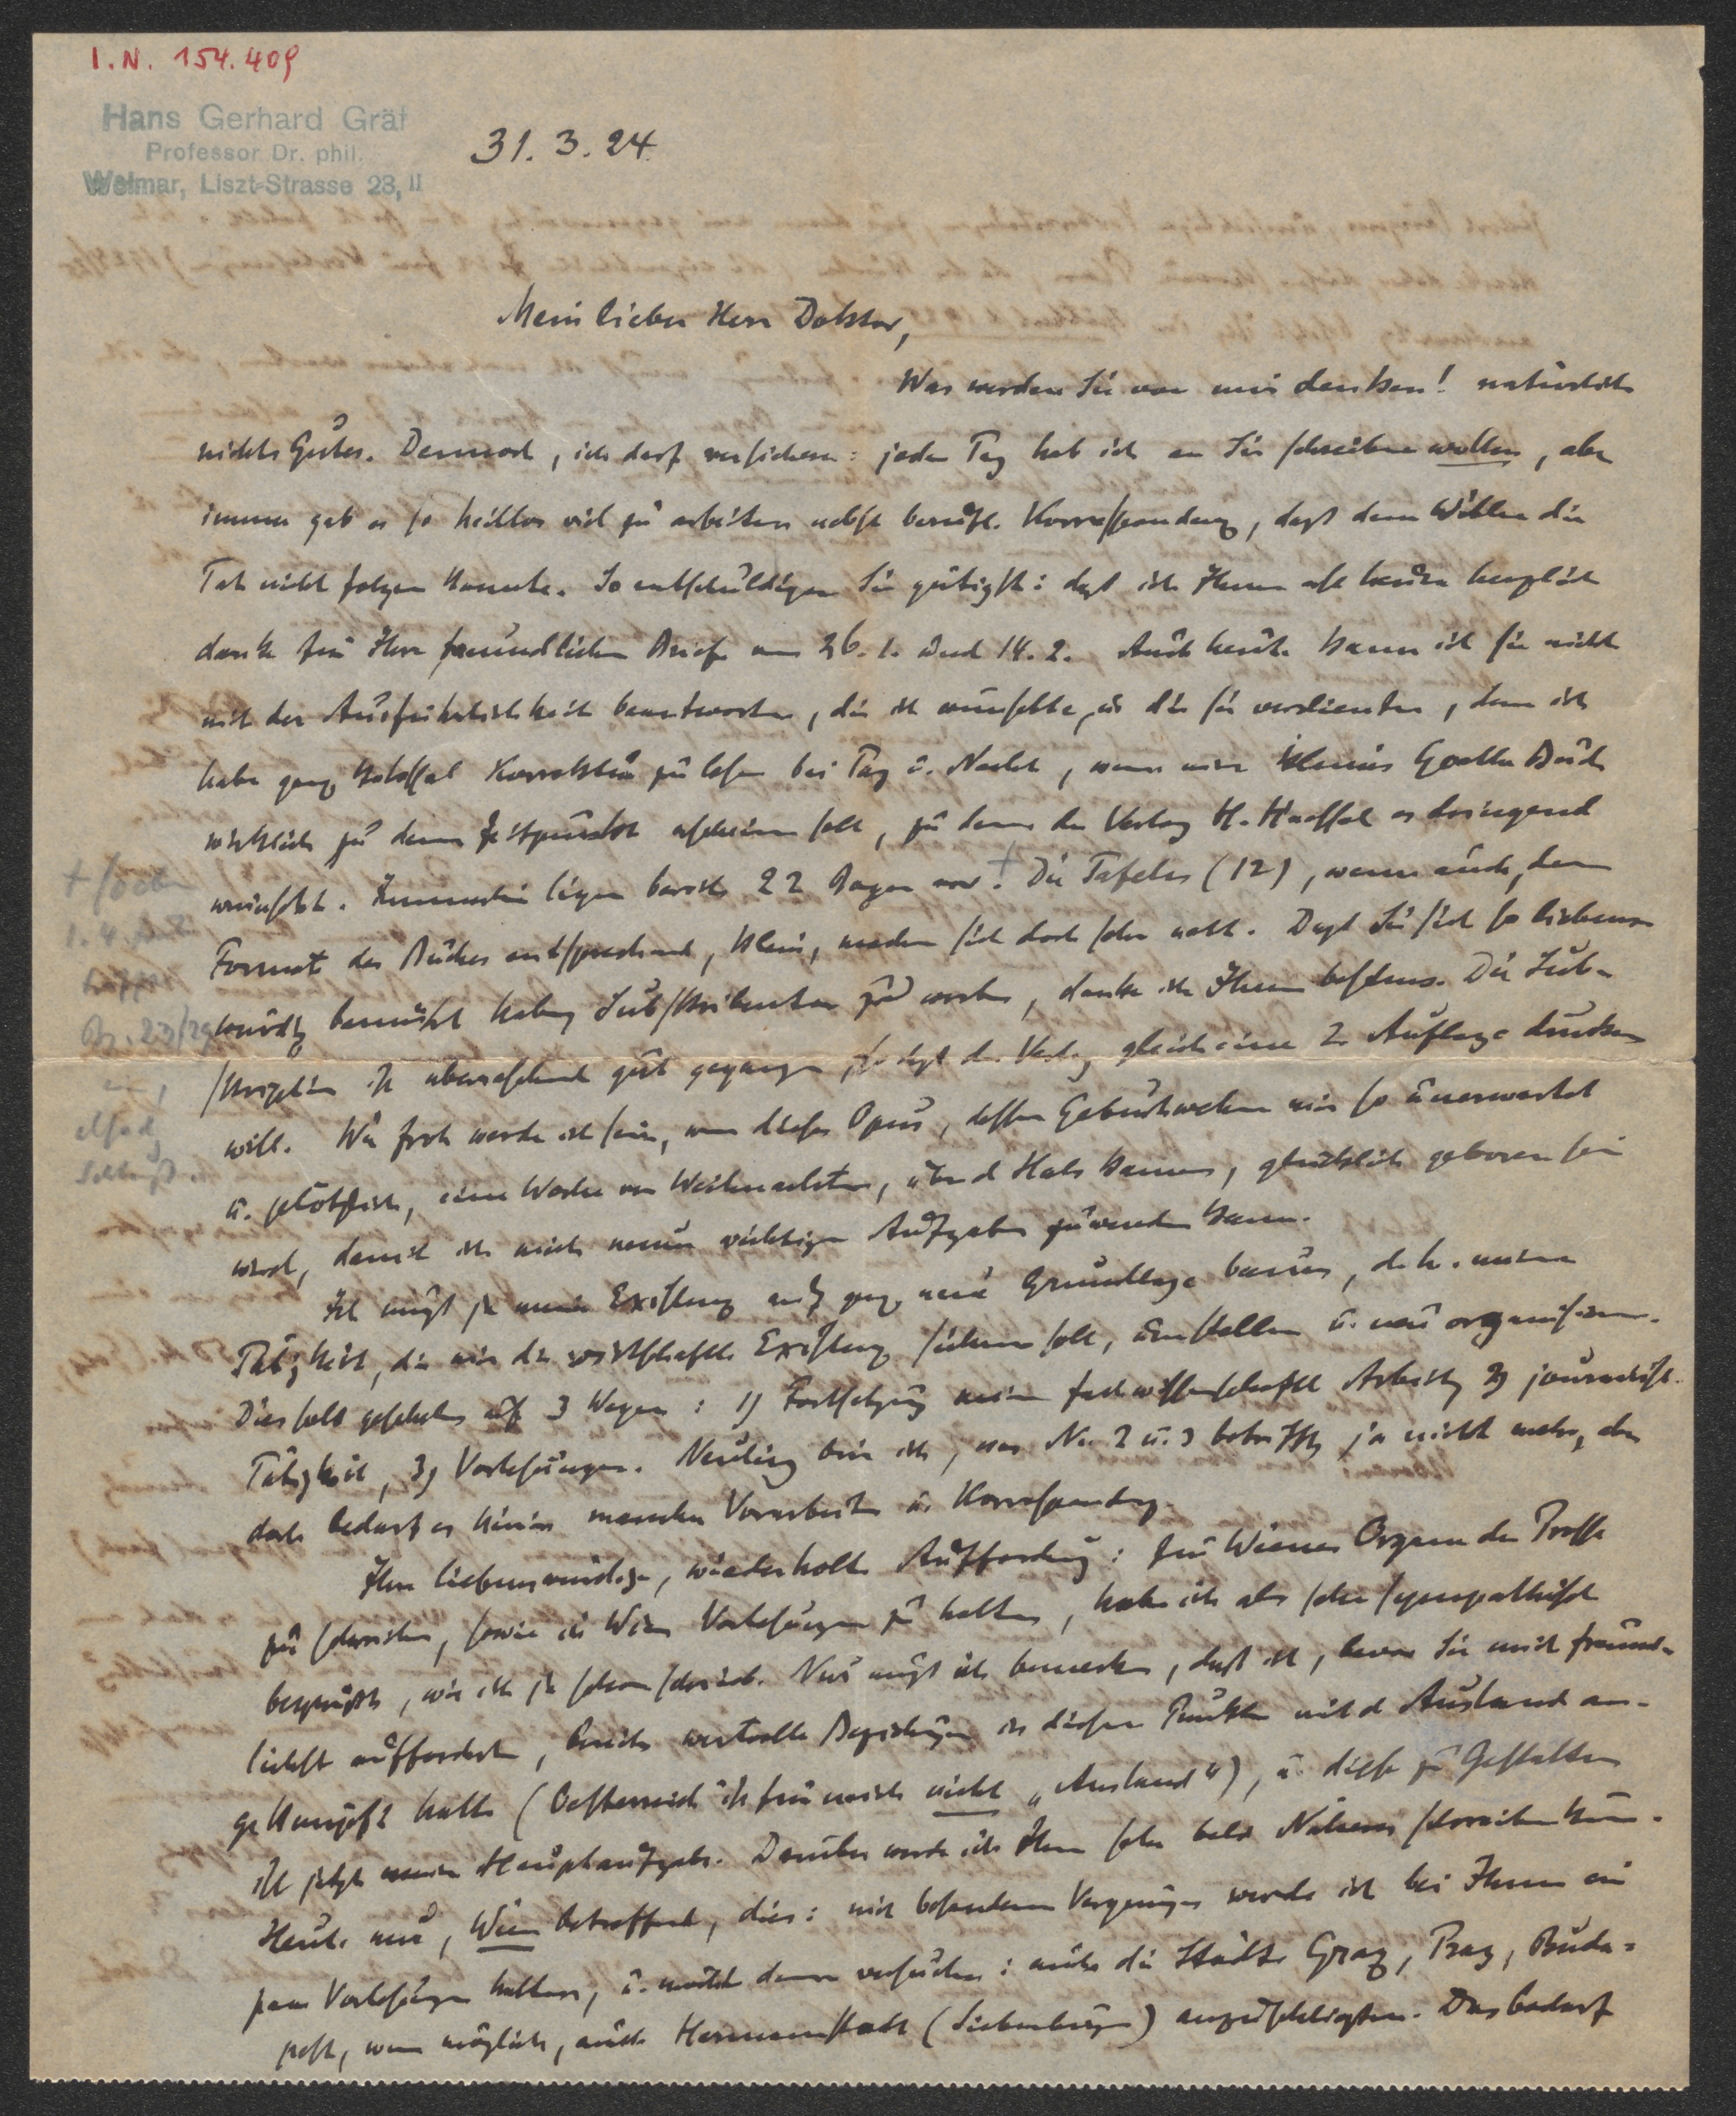 I. N. 154.409
Hans Gerhard Gräf
Professor Dr. phil.
Weimar, Liszt-Strasse 23, II
31. 3. 24.
Mein lieber Herr Doktor,
Was werden Sie von mir denken! natürlich
nichts Gutes. Dennoch, ich darf versichern: jeden Tag hab ich an Sie schreiben wollen, aber
immer gab es so heillos viel zu arbeiten nebst berufl. Korrespondenz, daß dem Willen die
Tat nicht folgen konnte. So entschuldigen Sie gütigst: daß ich Ihnen erst heute herzlich
danke für Ihre freundlichen Briefe vom 26. 1. und 14. 2. Auch heute kann ich sie nicht
mit der Ausführlichkeit beantworten, die ich wünschte, u. die sie verdienten, denn ich
habe ganz kolossal Korrektur zu lesen bei Tag u. Nacht, wenn mein kleines Goethe Buch
wirklich zu dem Zeitpunkt erscheinen soll, zu dem der Verlag H. Haessel es dringend
wünscht. Immerhin liegen bereits 22 Bogen vor.+ Die Tafeln (12), wenn auch, dem
+ soeben
1. 4.
Bg. 23/24
Schluß.
Format des Buches entsprechend, klein, machen sich doch sehr nett. Daß Sie sich so liebens-
würdig bemüht haben, Subskribenten zu werben, danke ich Ihnen bestens. Die Sub-
skription ist überraschend gut gegangen, so daß der Verlag gleich eine 2. Auflage drucken
will. Wie froh werde ich sein, wenn dieses Opus, dessen Geburtswehen mir so unerwartet
u. plötzlich, eine Woche vor Weihnachten, über d Hals kamen, glücklich geboren sein
wird, damit ich mich neuen wichtigen Aufgaben zuwenden kann.
Ich muß ja meine Existenz auf ganz neue Grundlage bauen, d. h. meine
Tätigkeit, die mir die wirtschaftl. Existenz sichern soll, umstellen u. neu organisieren.
Dies soll geschehen auf 3 Wegen: 1) Fortsetzung meiner fachwissenschaftl Arbeit, 2) journalist.
Tätigkeit, 3) Vorlesungen. Neuling bin ich, was No. 2 u. 3 betrifft, ja nicht mehr,
doch bedarf es hierin mancher Vorarbeit u. Korrespondenz.
Ihre liebenswürdige, wiederholte Aufforderung: für Wiener Organe der Presse
zu schreiben, sowie in Wien Vorlesungen zu halten, habe ich als sehr sympathisch
begrüßt, wie ich ja schon schrieb. Nur muß ich bemerken, daß ich, bevor Sie mich freund-
lichst aufforderten, bereits wertvolle Beziehungen in diesen Punkten mit d Ausland an-
geknüpft hatte (Oesterreich ist für mich nicht „Ausland“), u. diese zu Gestalten
ist jetzt meine Hauptaufgabe. Darüber werde ich Ihnen sehr bald Näheres schreiben kön.
Heute nur, Wien betreffend, dies: mit besonderem Vergnügen werde ich bei Ihnen ein
paar Vorlesungen halten, u. möchte dann versuchen: auch die Städte Graz, Prag, Buda-
pest, wenn möglich, auch Hermannstadt (Siebenbürgen) anzuschließen. Das bedarf